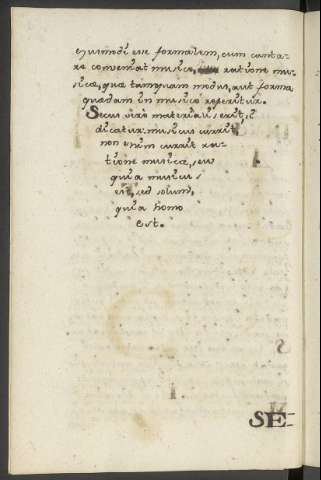 ejusmodi esse formalem, cum canta-
re conveniat musico, ratione mu-
sicæ, quæ tamquam modus, aut forma
quædam in musico reperitur.
Secus vero materialis erit, si
dicatur: musicus currit,
non enim currit ra-
tione musicæ, seu
quia musicus
est, sed solum,
quia homo
est.
SE-